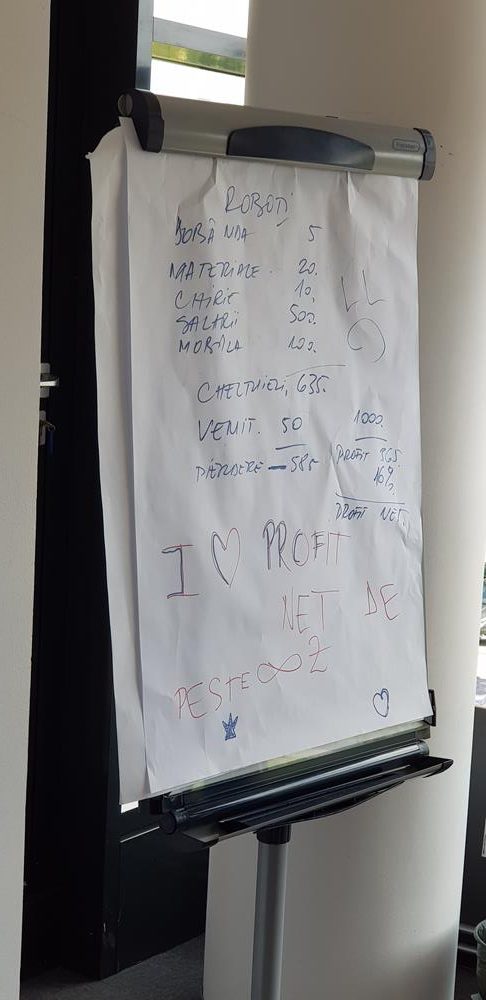 ROBOȚI
DOBÂNDA 5
MATERIALE. 20.
CHIRIE 10.
SALARII 500.
MOBILA 100.
LL
CHELTUIELI, 635.
VENIT. 50
PIERDERE -585
1000.
PROFIT 365
16%
PROFIT NET.
I ♡ PROFIT
NET DE
PESTE ∞ Z